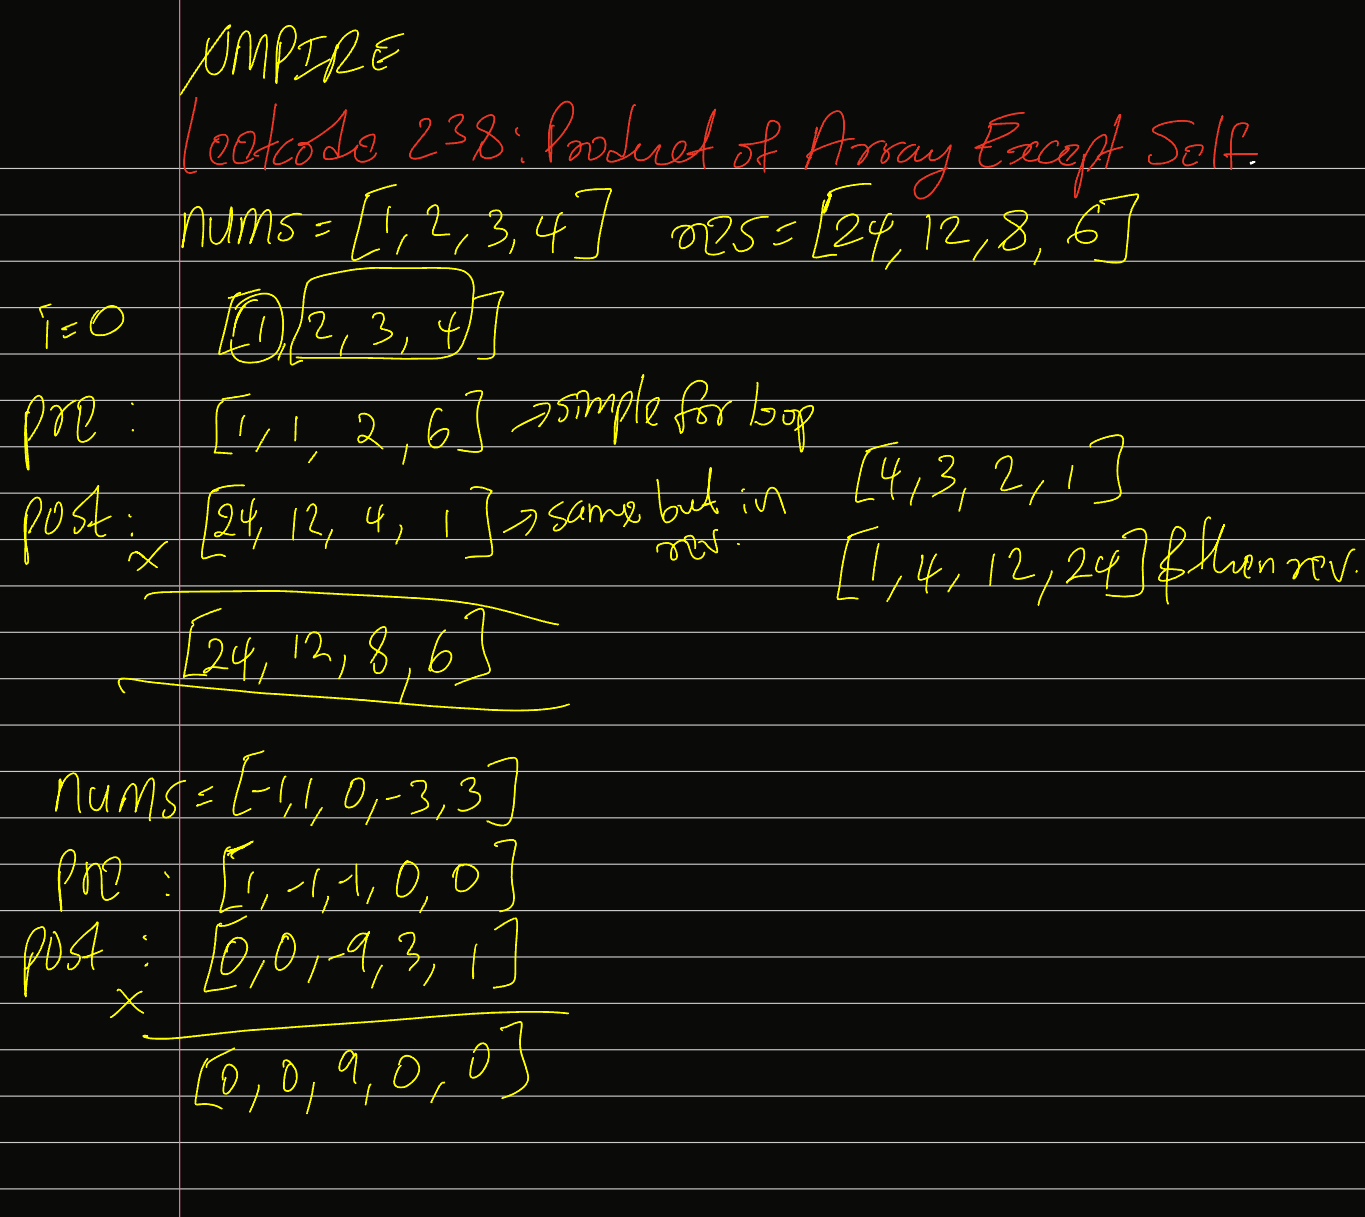 UMPIRE
Leetcode 238: Product of Array Except Self.
nums = [1, 2, 3, 4] res = [24, 12, 8, 6]
i=0 [1, 2, 3, 4]
pre : [1, 1, 2, 6] → simple for loop
[4, 3, 2, 1]
post : [24, 12, 4, 1] → same but in rev.
[1, 4, 12, 24] & then rev.
x
[24, 12, 8, 6]
nums = [-1, 1, 0, -3, 3]
pre : [1, -1, -1, 0, 0]
post : [0, 0, -9, 3, 1]
x
[0, 0, 9, 0, 0]